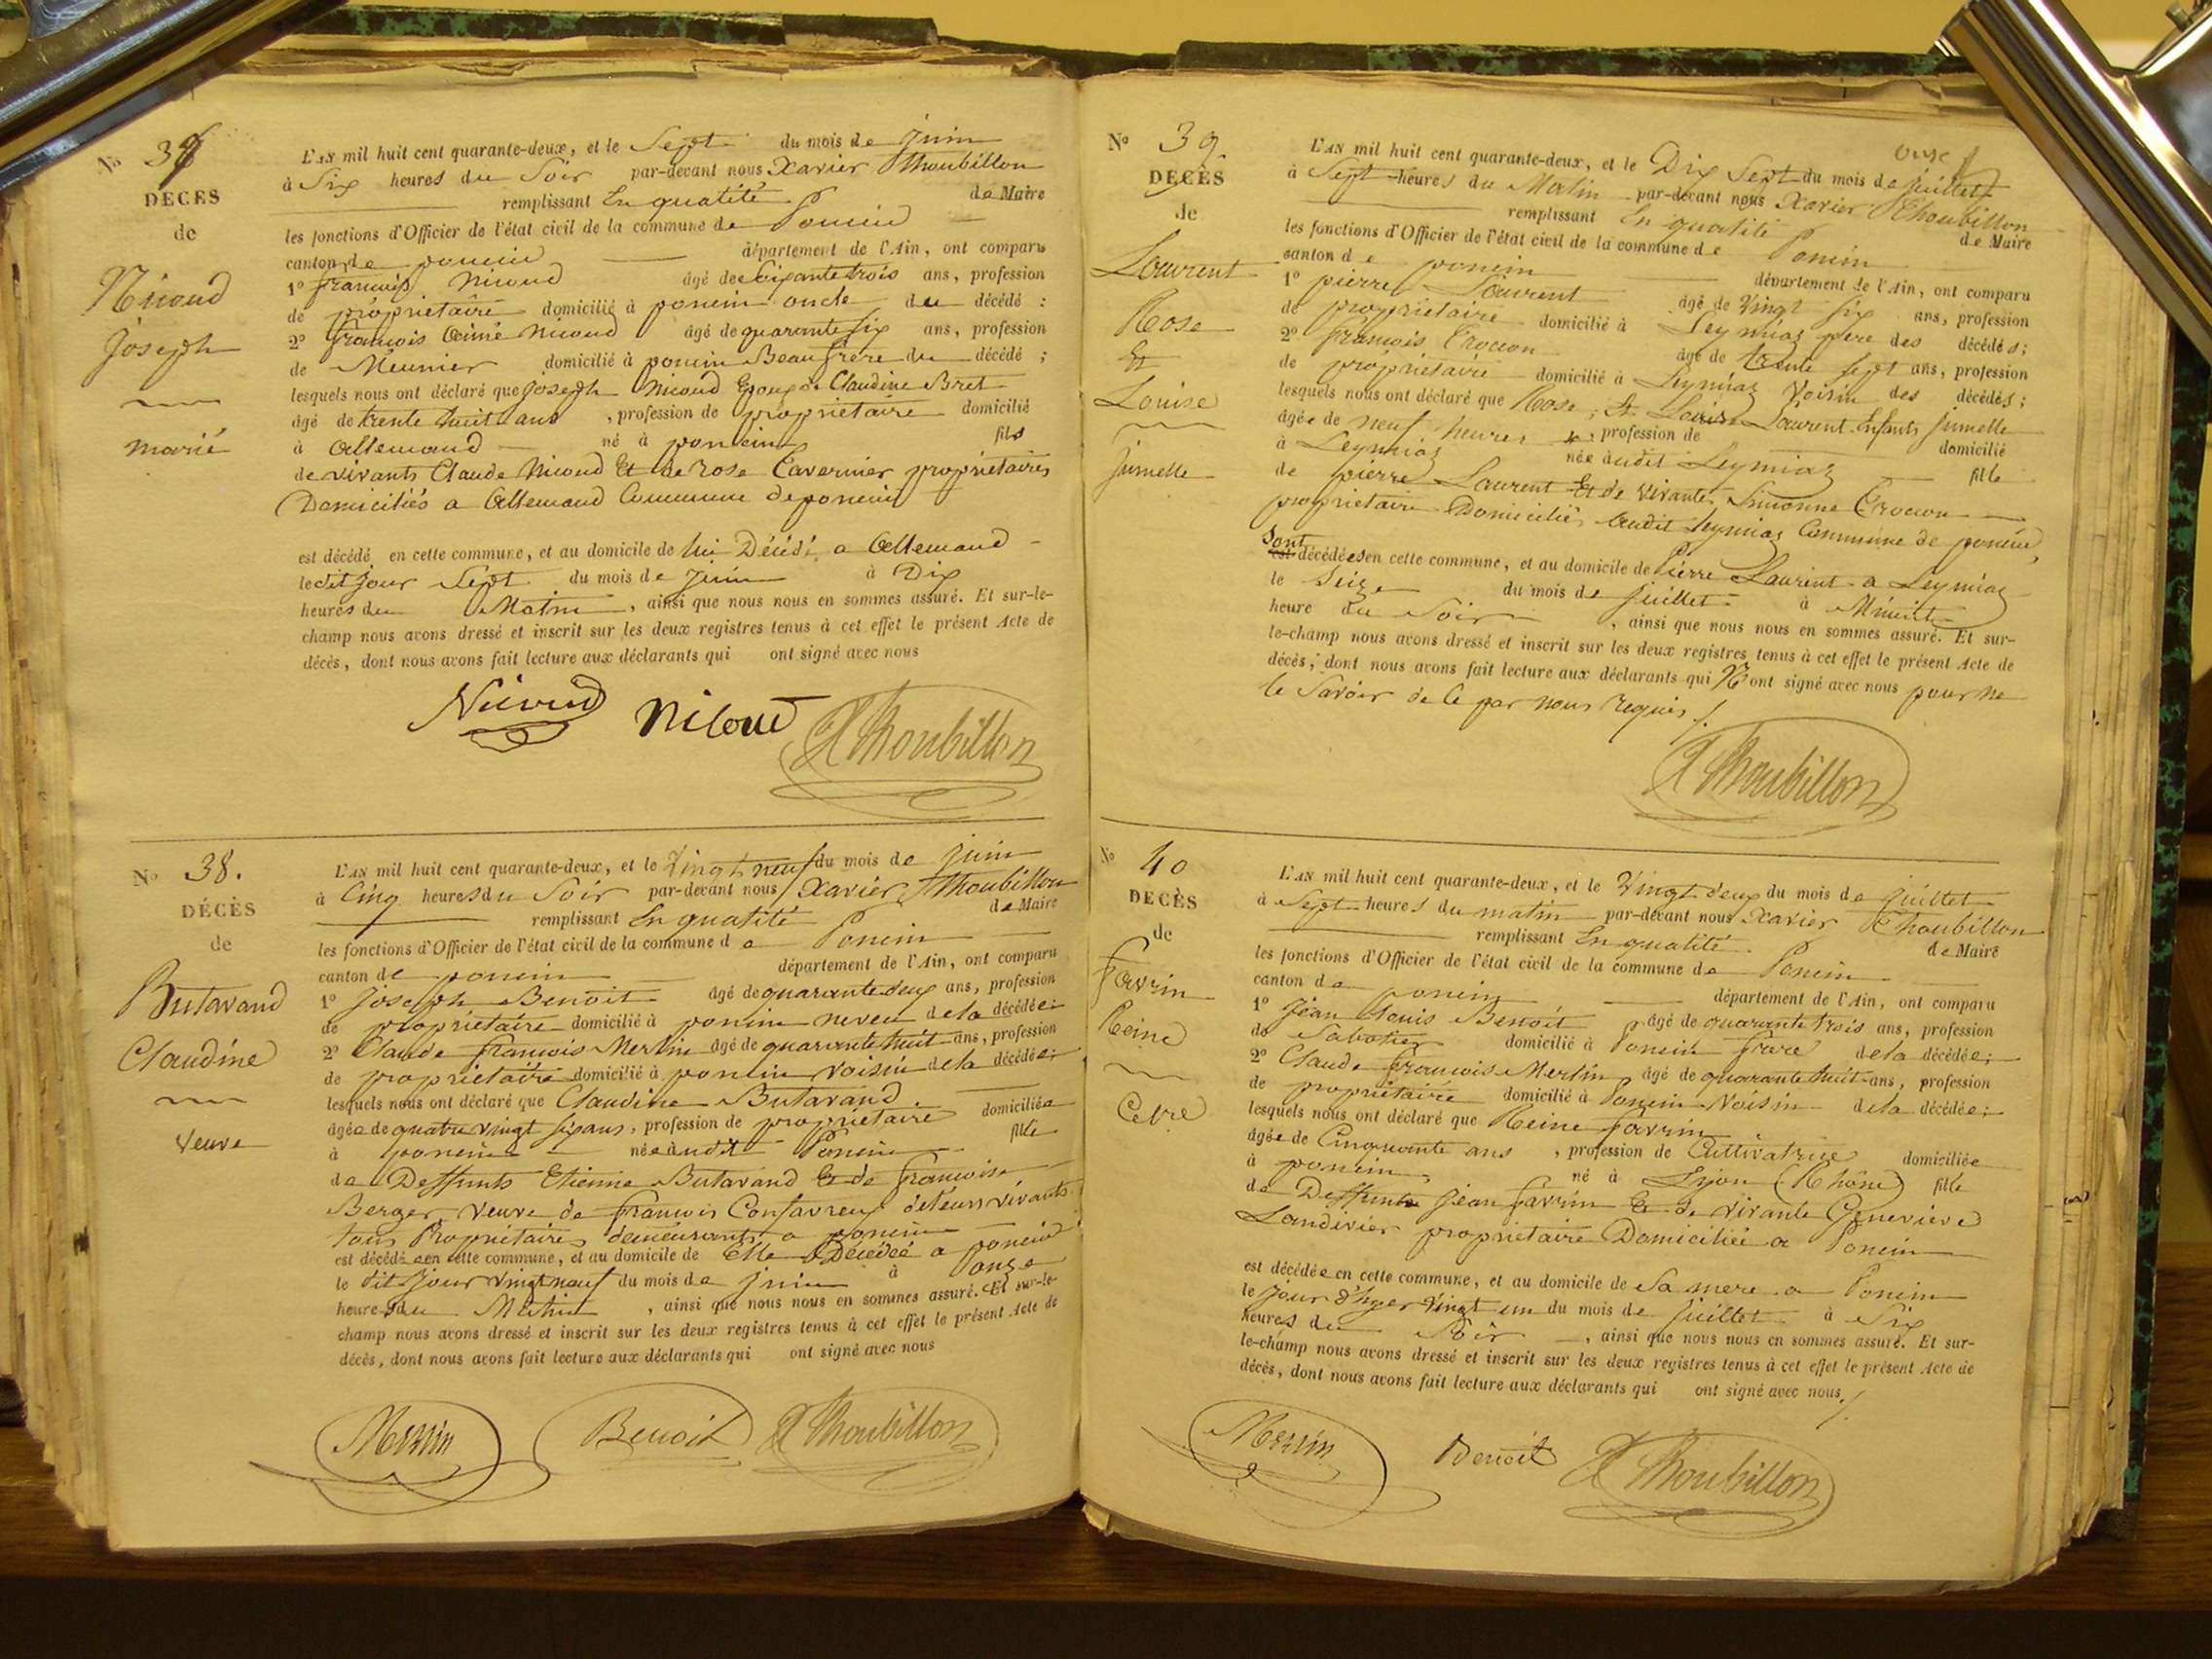 No 37
DÉCÈS
de
Nicoud
Joseph
marié
L'AN mil huit cent quarante-deux, et le Sept du mois de juin
à Six heures du Soir par-devant nous Xavier Thoubillon
remplissant En qualité de Maire
les fonctions d'Officier de l'état civil de la commune de Poncin
canton de poncin département de l'Ain, ont comparu
1o françois Nicoud âgé de Soixante trois ans, profession
de propriétaire domicilié à poncin oncle du décédé :
2o françois Aimé Nicoud âgé de quarante six ans, profession
de Meunier domicilié à poncin Beaufrère du décédé ;
lesquels nous ont déclaré que joseph Nicoud Epoux de Claudine Bret
âgé de trente huit ans , profession de propriétaire domicilié
à Allemand né à poncin fils
de vivants Claude Nicoud Et de rose Tavernier propriétaires
Domiciliés a Allemand Commune de poncin
est décédé en cette commune, et au domicile de lui Décédé a Allemand
le dit jour Sept du mois de juin à Dix
heures du Matin , ainsi que nous nous en sommes assuré. Et sur-le-
champ nous avons dressé et inscrit sur les deux registres tenus à cet effet le présent Acte de
décès, dont nous avons fait lecture aux déclarants qui ont signé avec nous
Nicoud Nicoud X Thoubillon
No 38.
DÉCÈS
de
Butavand
Claudine
veuve
L'AN mil huit cent quarante-deux, et le Vingt neuf du mois de juin
à Cinq heures du Soir par-devant nous Xavier Thoubillon
remplissant En qualité de Maire
les fonctions d'Officier de l'état civil de la commune de Poncin
canton de poncin département de l'Ain, ont comparu
1o joseph Benoit âgé de quarante deux ans, profession
de propriétaire domicilié à poncin neveu de la décédée:
2o Claude françois Merlin âgé de quarante huit ans, profession
de propriétaire domicilié à poncin voisin de la décédée;
lesquels nous ont déclaré que Claudine Butavand
âgée de quatre vingt six ans, profession de propriétaire domiciliée
à poncin née audit Poncin fille
de Deffunts Etienne Butavand Et de françoise
Berger veuve de françois Confavreux de leurs vivants
tous Propriétaires demeurants a poncin
est décédée en cette commune, et au domicile de Elle Décédée a poncin
le dit jour vingt neuf du mois de juin à onze
heures du Matin , ainsi que nous nous en sommes assuré. Et sur-le-
champ nous avons dressé et inscrit sur les deux registres tenus à cet effet le présent Acte de
décès, dont nous avons fait lecture aux déclarants qui ont signé avec nous
Merlin Benoit X Thoubillon
No 39
DÉCÈS
de
Laurent
Rose
Et
Louise
jumelle
L'AN mil huit cent quarante-deux, et le Dix Sept du mois de juillet
à Sept heures du Matin par-devant nous Xavier Thoubillon
remplissant En qualité de Maire
les fonctions d'Officier de l'état civil de la commune de Poncin
canton de poncin département de l'Ain, ont comparu
1o pierre Laurent âgé de Vingt Six ans, profession
de propriétaire domicilié à Leymiaz père des décédés;
2o françois Crocon âgé de trente sept ans, profession
de propriétaire domicilié à Leymiaz Voisin des décédés;
lesquels nous ont déclaré que Rose, Et Louise Laurent Enfants jumelle
âgée de neuf heures , profession de domicilié
à Leymiaz née audit Leymiaz fille
de pierre Laurent Et de vivante Simonne Crocon
propriétaire Domiciliés audit Leymiaz Commune de poncin,
Sont
est décédées en cette commune, et au domicile de Pierre Laurent a Leymiaz
le Seize du mois de juillet à Minuit
heure du Soir , ainsi que nous nous en sommes assuré. Et sur-
le-champ nous avons dressé et inscrit sur les deux registres tenus à cet effet le présent Acte de
décès, dont nous avons fait lecture aux déclarants qui N'ont signé avec nous pour ne
le Savoir de Ce par nous requis
X Thoubillon
No 40
DÉCÈS
de
Favrin
Reine
L'AN mil huit cent quarante-deux, et le Vingt deux du mois de juillet
à Sept heures du matin par-devant nous Xavier Thoubillon
remplissant En qualité de Maire
les fonctions d'Officier de l'état civil de la commune de Poncin
canton de poncin département de l'Ain, ont comparu
1o Jean Louis Benoit âgé de quarante trois ans, profession
de Sabotier domicilié à Poncin frere de la décédée;
2o Claude françois Merlin âgé de quarante huit ans, profession
de propriétaire domicilié à Poncin Voisin de la décédée;
lesquels nous ont déclaré que Reine favrin
âgée de Cinquante ans , profession de Cultivatrice domiciliée
à poncin né à Lyon (Rhône) fille
de Deffunt jean favrin Et de vivante Genevieve
Landivier propriétaire Domiciliée a Poncin
est décédée en cette commune, et au domicile de Sa mere a Poncin
le jour d'hyer vingt un du mois de juillet à Six
heures du Soir , ainsi que nous nous en sommes assuré. Et sur-
le-champ nous avons dressé et inscrit sur les deux registres tenus à cet effet le présent Acte de
décès, dont nous avons fait lecture aux déclarants qui ont signé avec nous.
Merlin Benoit X Thoubillon